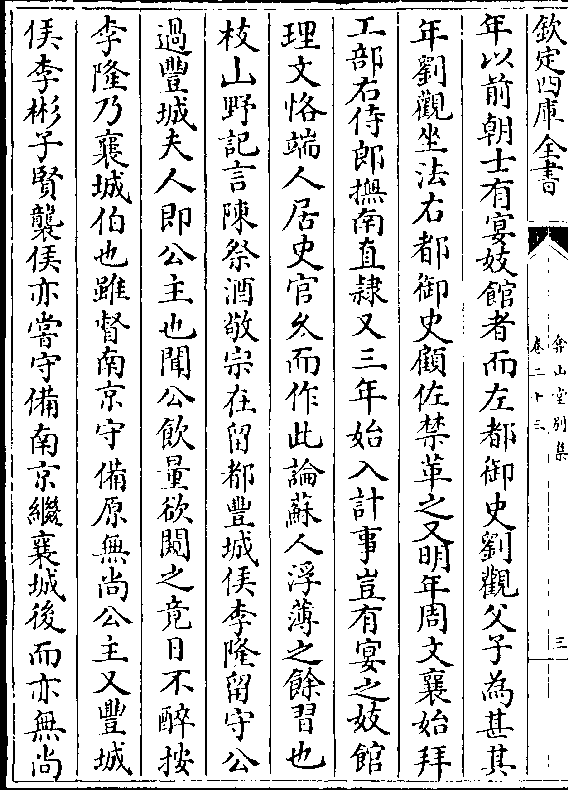 欽定四庫全書
弇山堂別集
卷二十三
三
年以前朝士有宴妓館者而左都御史劉觀父子為甚其
年劉觀坐法右都御史顧佐禁革之又明年周文襄始拜
工部右侍郎撫南直隸又三年始入計事豈有宴之妓館
理文恪端人居史官久而作此論蘇人浮薄之餘習也
枝山野記言陳祭酒敬宗在留都豐城侯李隆留守公
過豐城夫人即公主也聞公飲量欲闚之竟日不醉按
李隆乃襄城伯也雖督南京守備原無尚公主又豐城
侯李彬子賢襲侯亦嘗守備南京繼襄城後而亦無尚